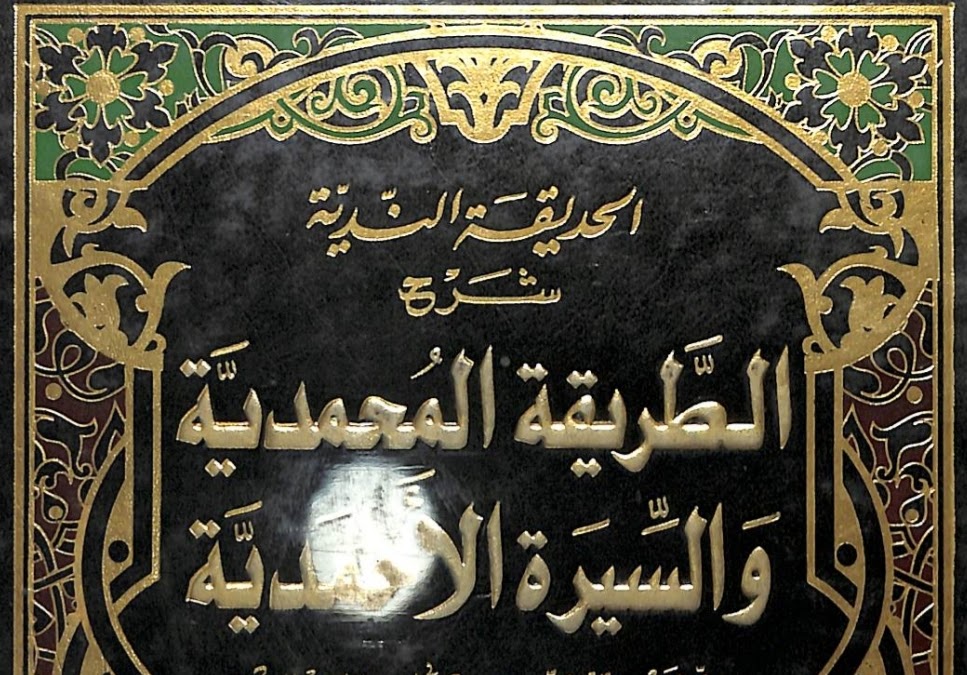 الحديقة النديّة
شَرْح
الطَّريقة المُحمديَّة
وَالسِّيرَة الأَحمَديَّة